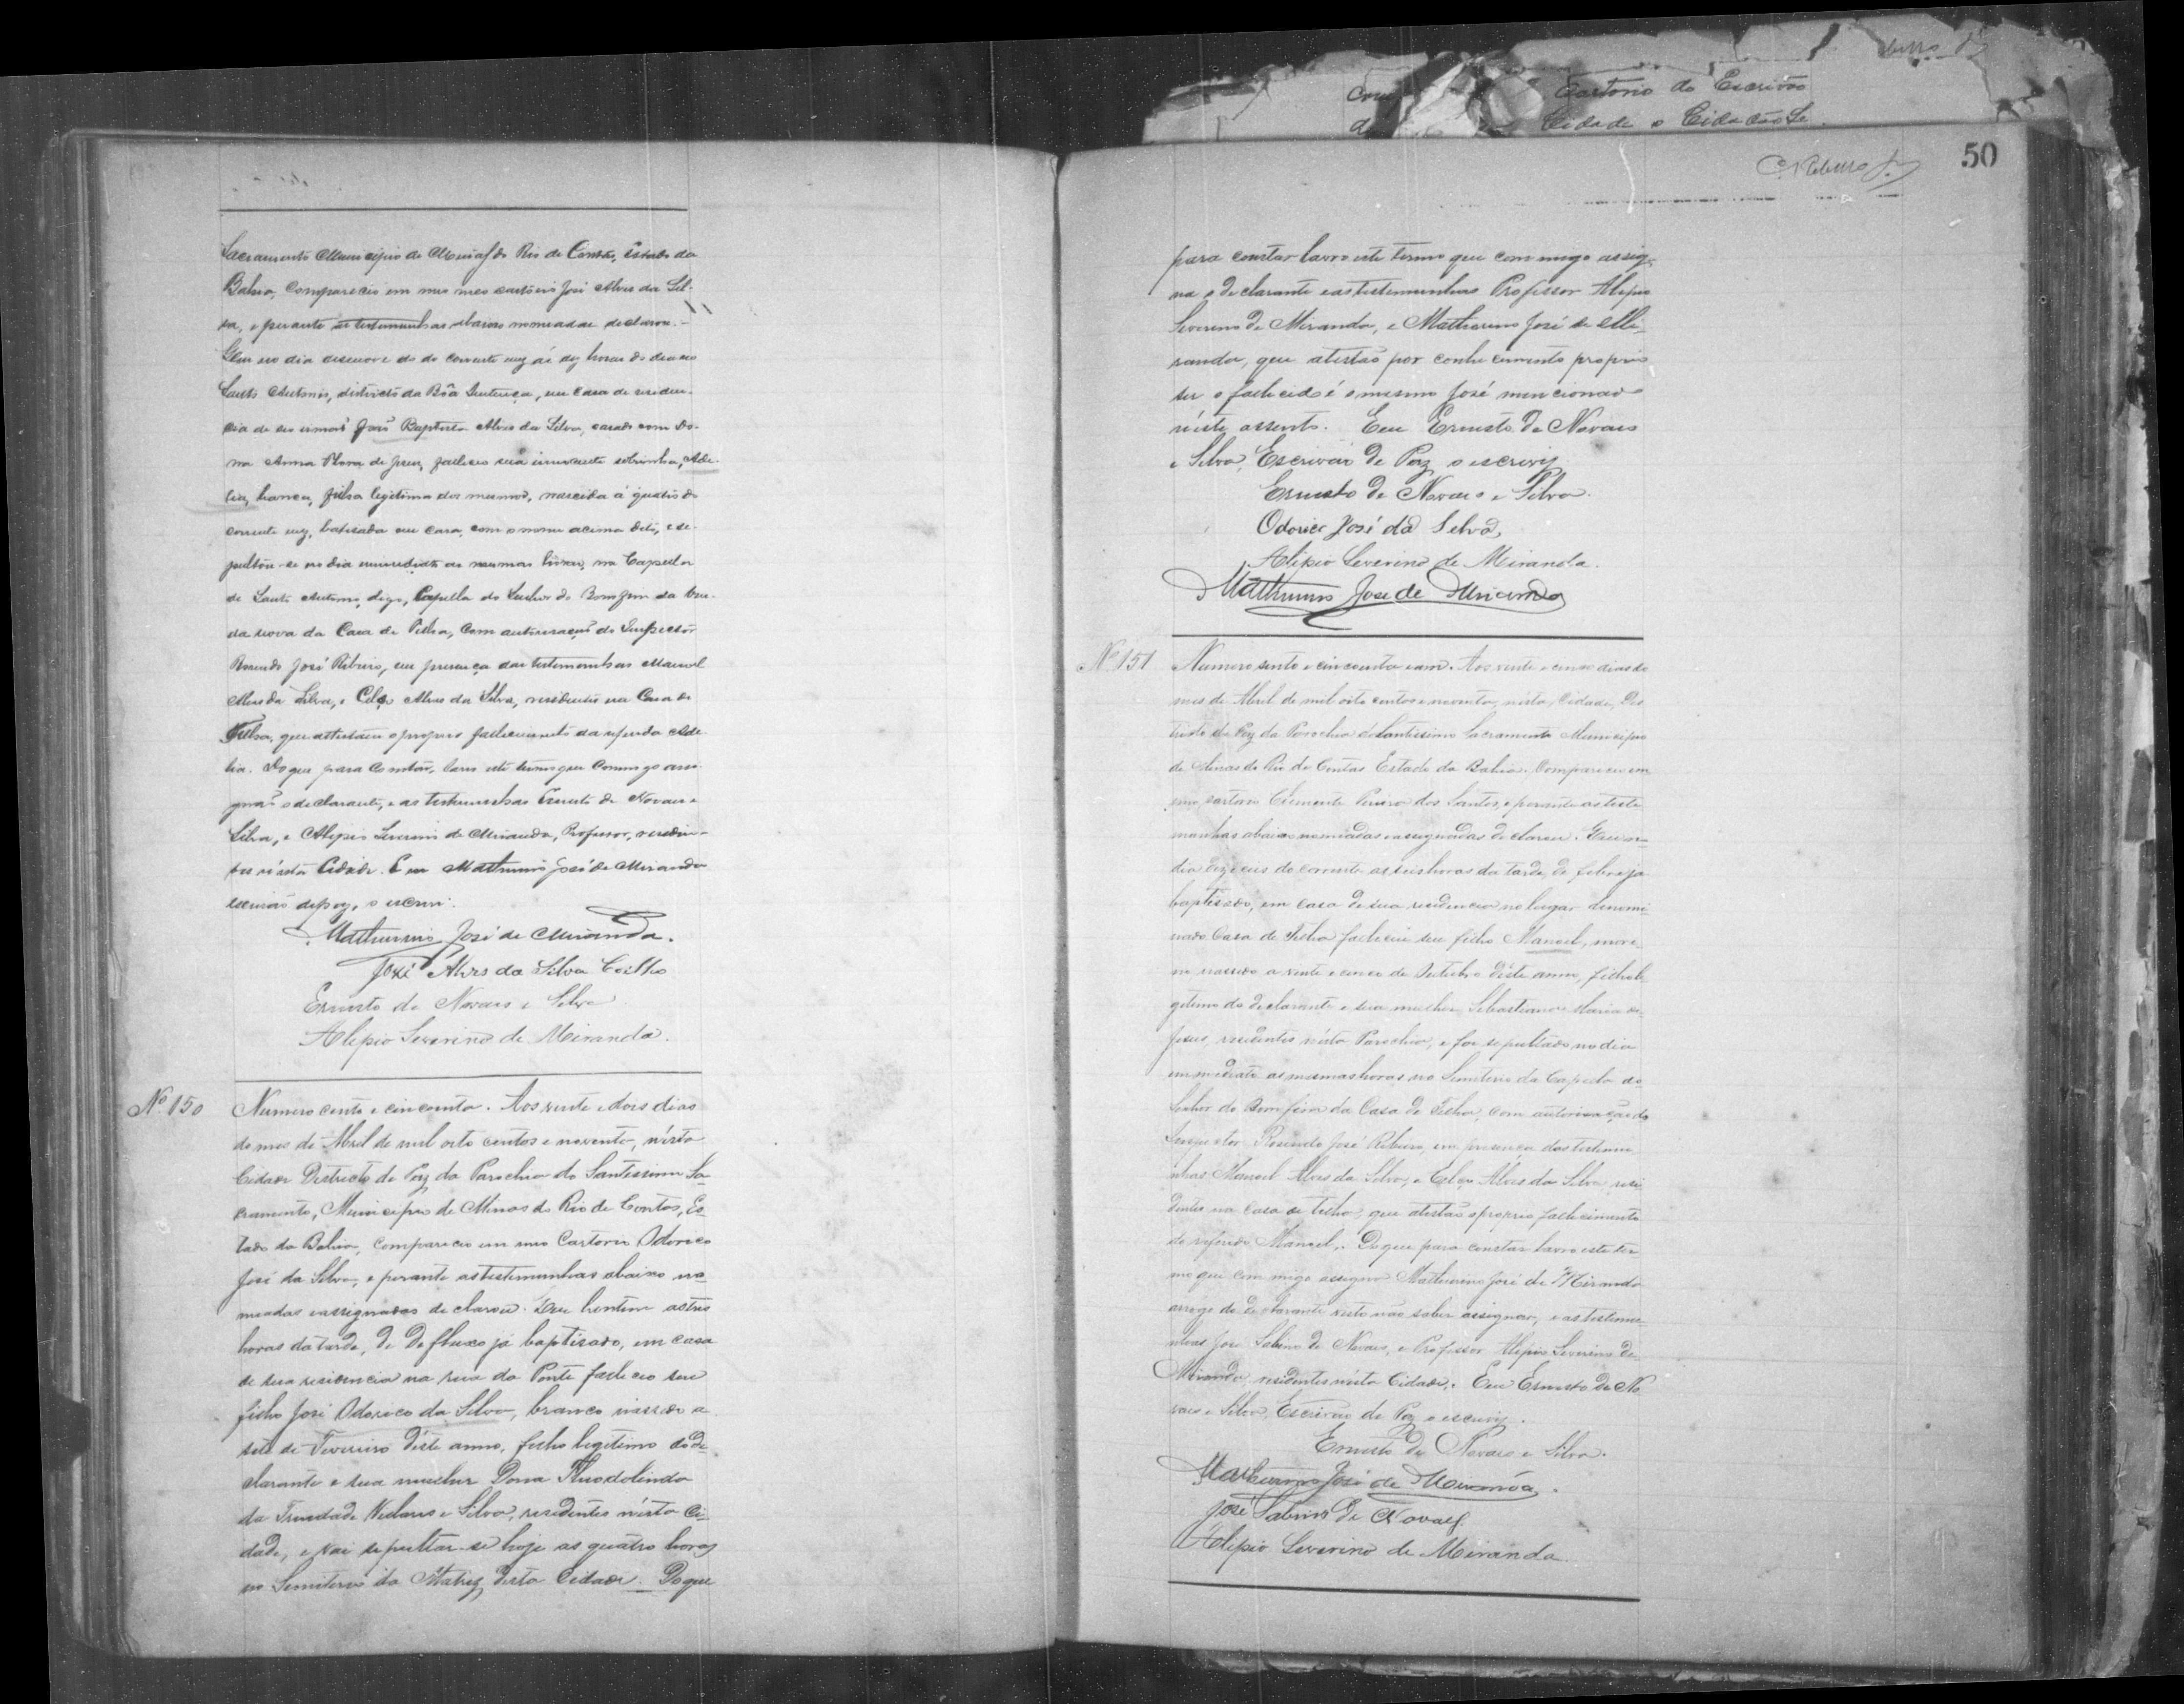 Sacramento Municipio de Minas do Rio de Contas, Estado da
Bahia, compareceo em meu cartorio José Alves da Sil-
va, e perante as testemunhas abaixo nomeadas declarou. -
Que no dia desenove do corrente mez ás dez horas do dia no
Santo Antonio, districto da Bôa Sentença, em casa de residen-
cia de seo irmaõ João Baptista Alves da Silva, casado com Do-
na Anna Rosa de Jesus, falleceo sua innocente sobrinha, Ade-
lia, branca, filha legitima dos mesmos, nascida á quatro do
corrente mez, batisada em casa, com o nome acima dito, e se-
pultou-se no dia immediato as mesmas horas, na Capella
de Santo Antonio, digo, Capella do Senhor do Bomfim da
da nova da Casa de Telha, com autorisaçaõ do Inspector
Rosendo José Ribeiro, em presença das testemunhas Manoel
Alves da Silva, e Celso Alves da Silva, residentes na Casa de
Telha, que attestam o proprio fallecimento da referida Ade-
lia. Do que para constar, lavro este termo que commigo assi-
gnaõ o declarante, e as testemunhas Ernesto de Novaes e
Silva, e Alipio Severino de Miranda, Professor, residen-
tes nésta Cidade. Eu Mathurino José de Miranda
escrivaõ de paz, o escrevi.
Mathurino José de Miranda.
José Alves da Silva Coelho
Ernesto de Novaes e Silva
Alipio Severino de Miranda.
Nº 150 Numero cento e cincoenta. Aos vinte e dois dias
do mes de Abril de mil oito centos e noventa, nésta
Cidade Districto de Paz da Parochia do Santissimo Sa-
cramento, Municipio de Minas do Rio de Contas, Es-
tado da Bahia, compareceo em meo Cartorio Odorico
José da Silva, e perante as testemunhas abaixo no-
meadas e assignadas declarou. Que hontem as tres
horas da tarde, de defluxo já baptisado, em casa
de sua residencia na rua da Ponte falleceo seu
filho José Odorico da Silva, branco nascido a
sete de Fevereiro déste anno, filho legitimo do de-
clarante e sua mulher Dona
da Trindade e Silva, residentes nésta Ci-
dade, e vai sepultar-se hoje as quatro horas
no Semiterio da Matriz desta Cidade. Do que
50
para constar lavro este termo que commigo assig-
na o declarante e as testemunhas Professor Alipio
Severino de Miranda, e Mathurino José de Mi-
randa, que atestaõ por conhecimento proprio
ser o fallecido é o mesmo José mencionado
néste assento. Eu Ernesto de Novaes
e Silva, Escrivaõ de Paz o escrevy
Ernesto de Novaes e Silva.
Odorico José da Silva,
Alipio Severino de Miranda.
Mathurino José de Miranda
Nº 151 Numero sento e cincoenta e um. Aos vinte e cinco dias do
mes de Abril de mil oito centos e noventa, nésta Cidade, Dis-
tricto de Paz da Parochia do Santissimo Sacramento Municipio
de Minas do Rio de Contas Estado da Bahia. Compareceo em
meu cartorio Clemente Pereira dos Santos, e perante as teste-
munhas abaixo nomiadas e assignadas declarou. Que no
dia dezeseis do corrente as seis horas da tarde, de febre já
baptisado, em casa de sua residencia no lugar denomi-
nado Casa de Telha falleceu seu filho Manoel, more-
no nascido a vinte e cinco de déste anno, filho le-
getimo do declarante e sua mulher Sebastiana Maria de
Jesus, residentes nésta Parochia, e foi sepultado no dia
immediato as mesmas horas no Semiterio da Capella do
Senhor do Bomfim da Casa de Telha, com autorisaçaõ do
Inspector Rosendo José Ribeiro, em presença das testemu-
nhas Manoel Alves da Silva, e Celso Alves da Silva, resi-
dentes na Casa de telha, que atestaõ o proprio fallecimento
do referido Manoel. Do que para constar lavro este ter-
mo que com migo assigna Mathurino José de Miranda
arogo do declarante visto não saber assignar, e as testemu-
nhas José Sabino de Novaes, e Professor Alipio Severino de
Miranda, residentes nésta Cidade. Eu Ernesto de No-
vaes e Silva, Escrivaõ de Paz o escrevy.
Ernesto de Novaes e Silva.
Mathurino José de Miranda.
José Sabino de Novaes
Alipio Severino de Miranda.